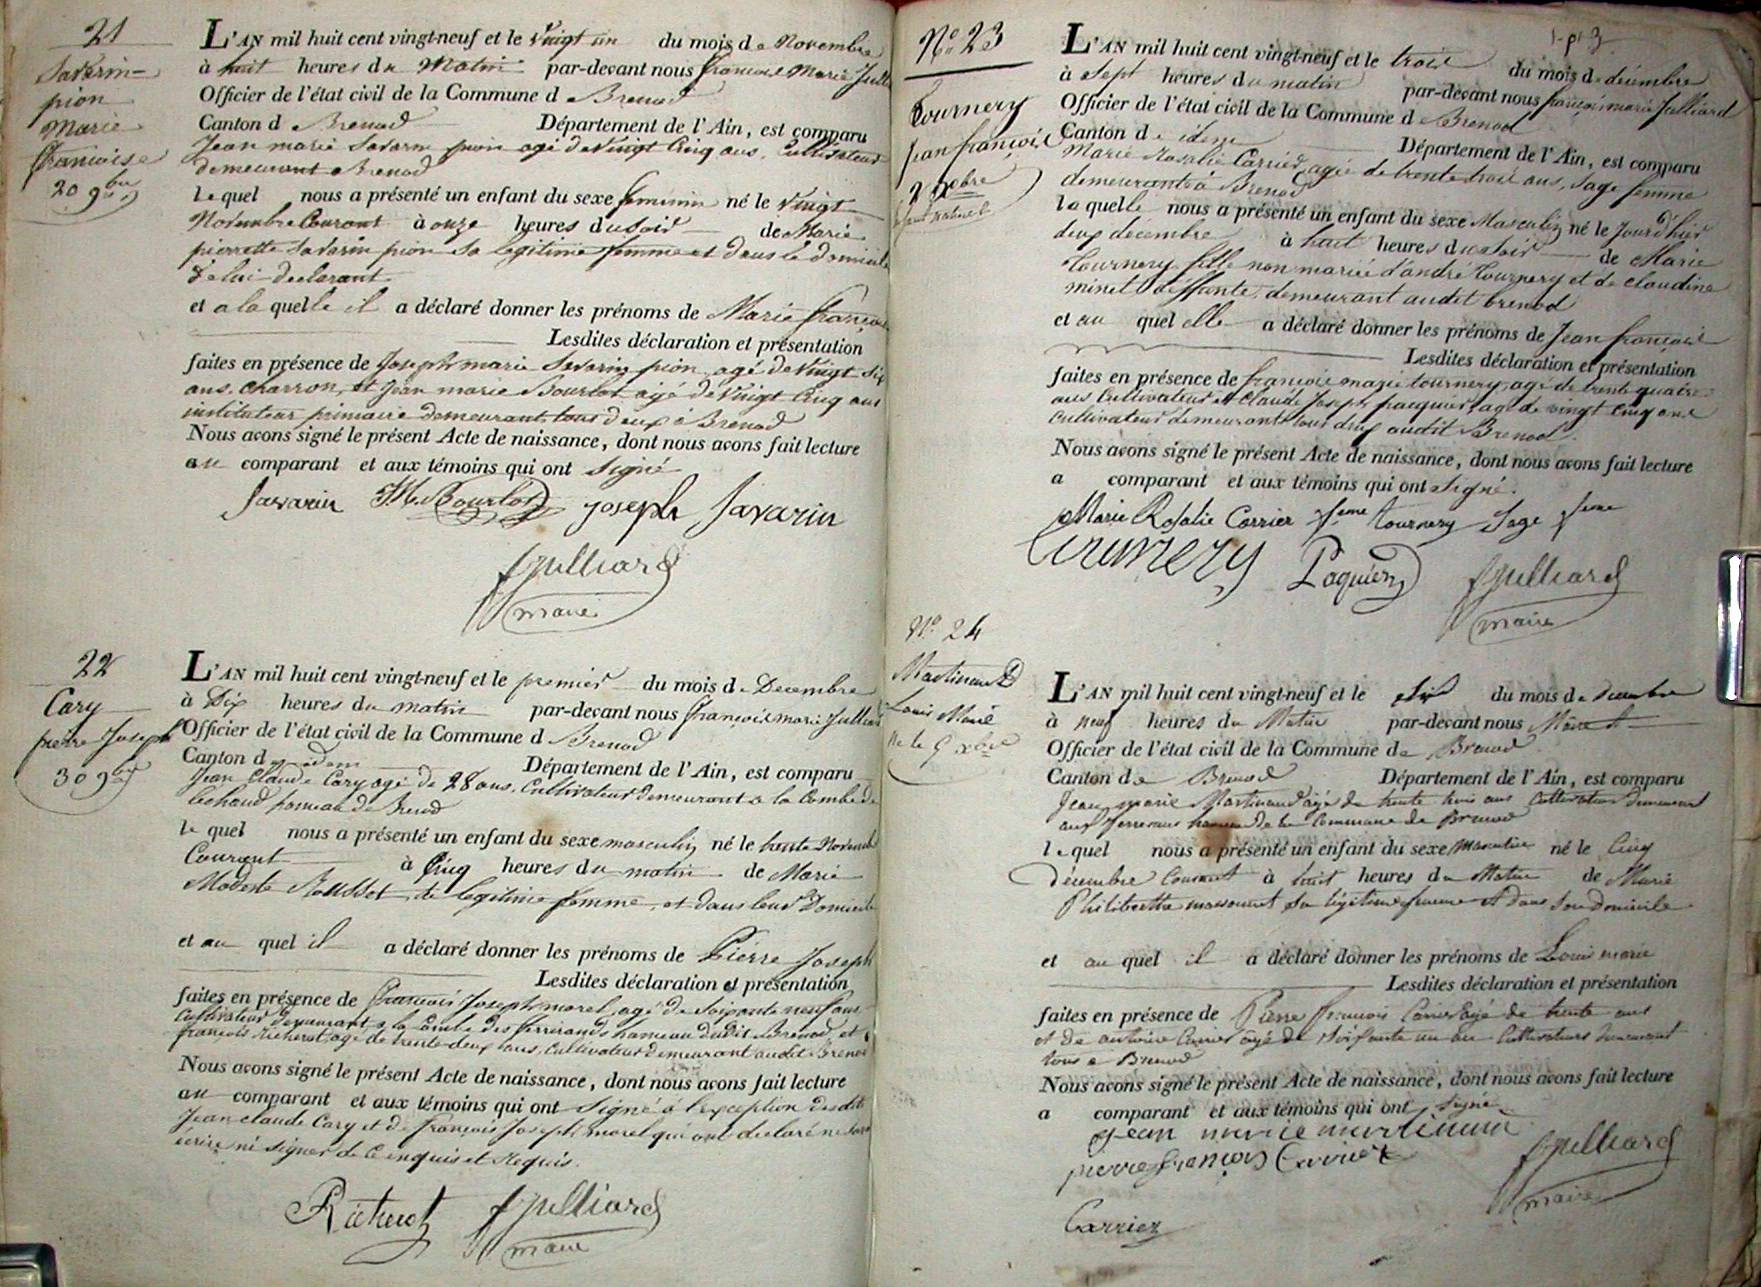 21
Savarin-
pion
Marie
françoise
20 9bre
L'AN mil huit cent vingt-neuf et le vingt un du mois de Novembre
à huit heures du Matin par-devant nous françois Marie Julli
Officier de l'état civil de la Commune d Brenod
Canton d Brenod Département de l'Ain, est comparu
Jean marie Savarin pion agé de vingt Cinq ans, Cultivateur
demeurant a Brenod
lequel nous a présenté un enfant du sexe feminin né le vingt
Novembre Courant à onze heures du soir de Marie
pierrette Savarin pion sa légitime femme et dans le domicile
de lui declarant
et a la quelle il a déclaré donner les prénoms de Marie françoise
Lesdites déclaration et présentation
faites en présence de Joseph marie Savarin pion, agé de vingt six
ans, charron, et Jean marie Bourlot agé de vingt Cinq ans
instituteur primaire demeurant tous deux à Brenod
Nous avons signé le présent Acte de naissance, dont nous avons fait lecture
au comparant et aux témoins qui ont signé
Savarin JM Bourlot Joseph Savarin
fjulliard
maire
22
Cary
pierre Joseph
30 9bre
L'AN mil huit cent vingt-neuf et le premier du mois de Decembre
à Dix heures du matin par-devant nous françois marie Julliard
Officier de l'état civil de la Commune d Brenod
Canton d idem Département de l'Ain, est comparu
Jean Claude Cary agé de 28 ans, Cultivateur demeurant a la Combe de
Lechaud hameau de Brenod
le quel nous a présenté un enfant du sexe masculin né le trente Novembre
Courant à Cinq heures du matin de Marie
Modeste légitime femme, et dans leur Domicile
et au quel il a déclaré donner les prénoms de Pierre Joseph
Lesdites déclaration et présentation
faites en présence de François Joseph morel agé de Soixante neuf ans
Cultivateur demeurant a la Combe des ferrirands hameau dudit Brenod, et
françois Richerot, agé de trente deux ans, Cultivateur demeurant audit Brenod
Nous avons signé le présent Acte de naissance, dont nous avons fait lecture
au comparant et aux témoins qui ont signé à l'exception desdits
Jean claude Cary et de françois Joseph morel qui ont declaré ne savoir
écrire ni signer de ce enquis et requis.
Richerot fjulliard
maire
1-pr 3
No 23
Tournery
Jean françois
2 Xbre
Enfant naturel
L'AN mil huit cent vingt-neuf et le trois du mois de décembre
à sept heures du matin par-devant nous françois marie Julliard
Officier de l'état civil de la Commune d Brenod
Canton d idem Département de l'Ain, est comparu
Marie Rosalie Carrier, agée de trente trois ans, sage femme
demeurante à Brenod
la quelle nous a présenté un enfant du sexe Masculin né le jour d'hier
deux décembre à huit heures du soir de Marie
Tournery fille non mariée d'andré Tournery et de claudine
minet deffunte, demeurant audit brenod
et au quel elle a déclaré donner les prénoms de Jean françois
Lesdites déclaration et présentation
faites en présence de françois marie tournery, agé de trente quatre
ans Cultivateur et Claude Joseph pacquier, agé de vingt Cinq ans
Cultivateur demeurants tous deux audit Brenod.
Nous avons signé le présent Acte de naissance, dont nous avons fait lecture
a comparant et aux témoins qui ont signé.
Marie Rosalie Carrier feme tournery Sage feme
tournery Paquier fjulliard
maire
No 24
Martinand
Louis Marie
Né le 5 xbre
L'AN mil huit cent vingt-neuf et le six du mois de decembre
à neuf heures du Matin par-devant nous Maire
Officier de l'état civil de la Commune de Brenod
Canton de Brenod Département de l'Ain, est comparu
Jean marie Martinand agé de trente trois ans Cultivateur demeurant
aux hameau de la Commune de Brenod
lequel nous a présenté un enfant du sexe masculin né le Cinq
décembre Courant à huit heures du Matin de Marie
Philiberthe sa légitime femme et dans son domicile
et au quel il a déclaré donner les prénoms de Louis marie
Lesdites déclaration et présentation
faites en présence de Pierre francois Carrier agé de trente ans
et de antoine Carrier agé de soixante un an Cultivateurs demeurant
tous a Brenod
Nous avons signé le présent Acte de naissance, dont nous avons fait lecture
a comparant et aux témoins qui ont signé
jean marie martinand
pierre françois Carrier fjulliard
maire
Carrier